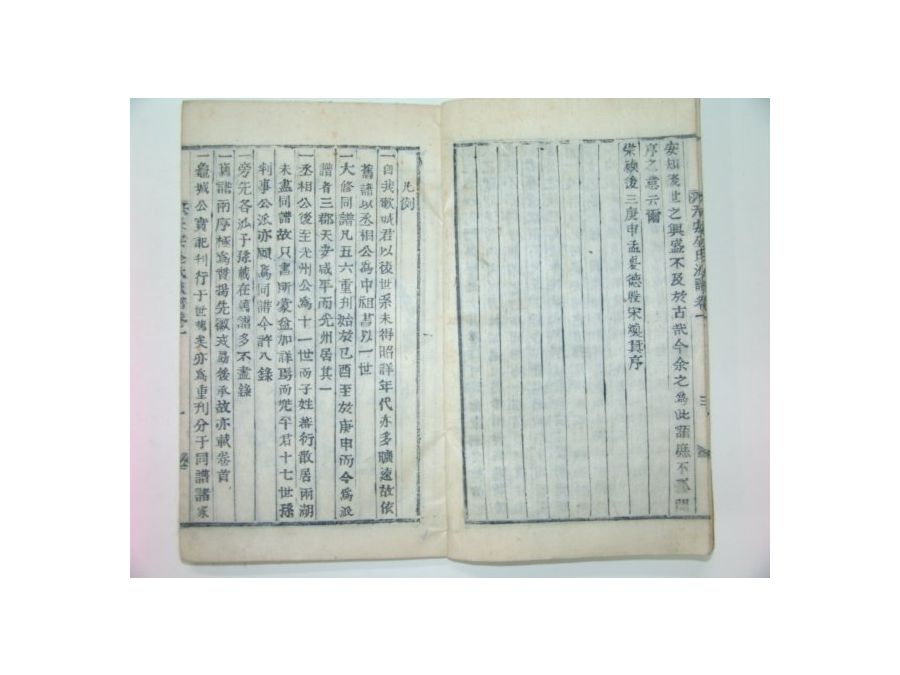 安知後世之興盛不及於古哉今余之為此譜庶不
序之意云爾
崇禎後三庚申孟夏德殷宋煥箕序
凡例
一自我歙城君以後世系未得昭詳年代亦多曠遠故依
舊譜以丞相公為中祖書以一世
一大修同譜凡五六重刊始於己酉至於庚申而今為派
譜者三郡天安咸平而光州居其一
一丞相公後至光州公為十一世而子姓蕃衍散居兩湖
未盡同譜故只書所蒙益加詳焉而咸平君十七世孫
判事公派亦願為同譜今許入錄
一旁先各派子孫載在舊譜多不盡錄
一舊譜兩序極為贊揚先徽戒勗後承故亦載卷首
一龜城公實記刊行于世舊矣亦為重刊分于同譜諸家